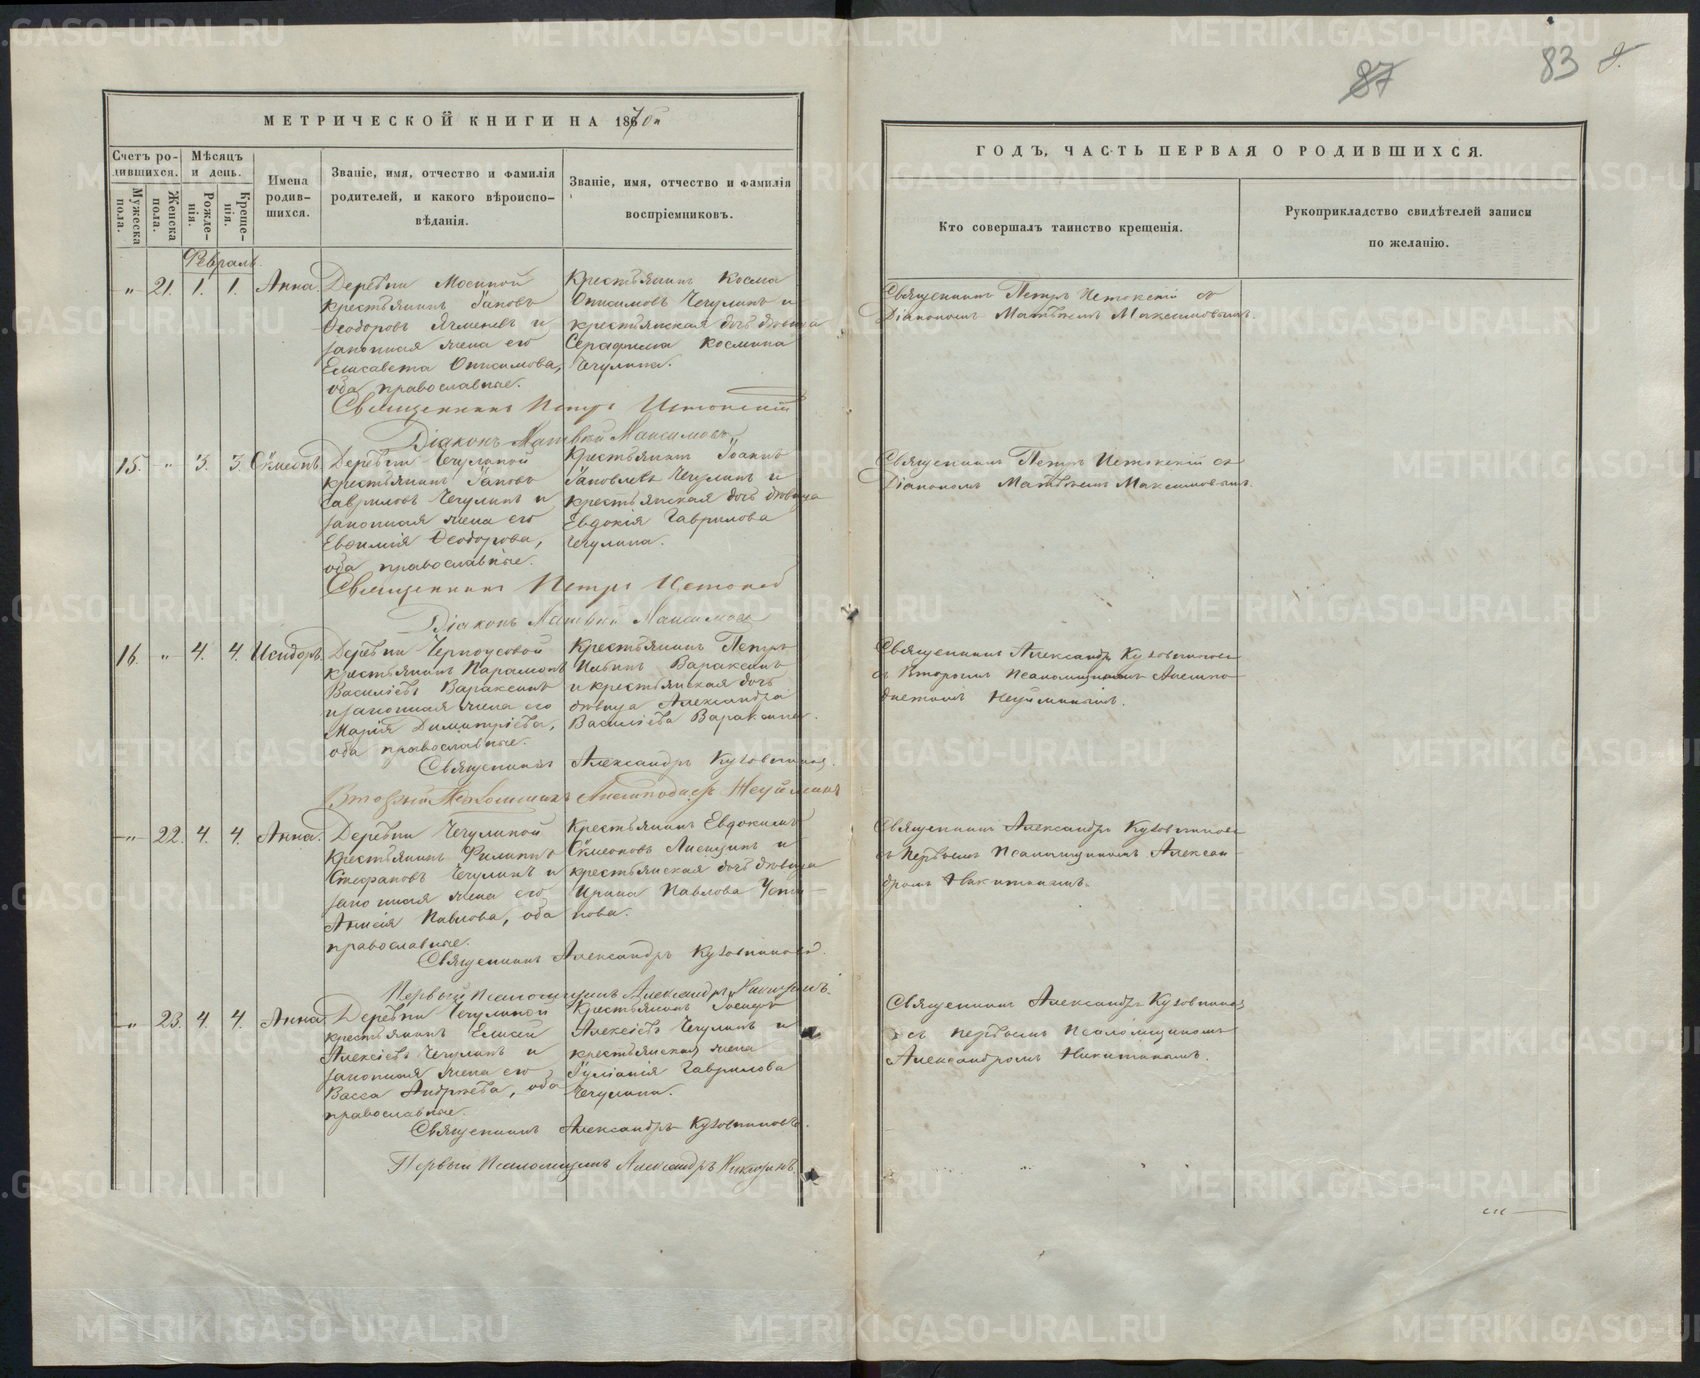 87
83
МЕТРИЧЕСКОЙ КНИГИ НА 1870й
ГОДЪ, ЧАСТЬ ПЕРВАЯ О РОДИВШИХСЯ.
Счетъ родившихся.
Мужеска пола.
Женска пола.
Мѣсяцъ и день.
Рожденія.
Крещенія.
Имена родившихся.
Званіе, имя, отчество и фамилія
родителей, и какого вѣроиспо-
вѣданія.
Званіе, имя, отчество и фамилія
воспріемниковъ.
Кто совершалъ таинство крещенія.
Рукоприкладство свидѣтелей записи
по желанію.
Февраль.
" 21. 1. 1. Анна.
Деревни Мосиной
крестьянинъ Іаковъ
Ѳеодоровъ Ячменевъ и
законная жена его
Елисавета Онисимова,
оба православные.
Крестьянинъ Косма
Онисимовъ Чечулинъ и
крестьянская дочь дѣвица
Серафима Космина
Чечулина.
Священникъ Петръ Истокскій съ
Діакономъ Матѳѣемъ Максимовымъ.
Священникъ Петръ Истокскій
Діаконъ Матвѣй Максимовъ
15. " 3. 3. Сѵмеонъ.
Деревни Чечулиной
крестьянинъ Іаковъ
Гавриловъ Чечулинъ и
законная жена его
Евѳимія Ѳеодорова,
оба православные.
Крестьянинъ Іоаннъ
Іаковлевъ Чечулинъ и
крестьянская дочь дѣвица
Евдокія Гаврилова
Чечулина.
Священникъ Петръ Истокскій съ
Діакономъ Матѳѣемъ Максимовымъ.
Священникъ Петръ Истокскій
Діаконъ Матвѣй Максимовъ
16. " 4. 4. Исидоръ.
Деревни Черноусовой
крестьянинъ Парамонъ
Василіевъ Вараксинъ
и законная жена его
Марія Димитріева,
оба православные.
Крестьянинъ Петръ
Ильинъ Вараксинъ
и крестьянская дочь
дѣвица Александра
Василіева Вараксина.
Священникъ Александръ Кузовниковъ
съ Вторымъ Псаломщикомъ
Священникъ Александръ Кузовниковъ.
Второй Псаломщикъ
" 22. 4. 4. Анна.
Деревни Чечулиной
Крестьянинъ Филиппъ
Стефановъ Чечулинъ и
законная жена его
Анисія Павлова, оба
православные.
Крестьянинъ Евдокимъ
Сѵмеоновъ Лисицинъ и
крестьянская дочь дѣвица
Ирина Павлова Усти-
нова.
Священникъ Александръ Кузовниковъ
съ Первымъ Псаломщикомъ Алексан-
дромъ Никитинымъ.
Священникъ Александръ Кузовниковъ.
Первый Псаломщикъ Александръ Никитинъ.
" 23. 4. 4. Анна.
Деревни Чечулиной
крестьянинъ Елисей
Алексіевъ Чечулинъ и
законная жена его
Васса Андреева, оба
православные.
Крестьянинъ
Алексіевъ Чечулинъ и
крестьянская жена
Іуліанія Гаврилова
Чечулина.
Священникъ Александръ Кузовниковъ
съ первымъ Псаломщикомъ
Александромъ Никитинымъ.
Священникъ Александръ Кузовниковъ.
Первый Псаломщикъ Александръ Никитинъ.
METRIKI.GASO-URAL.RU